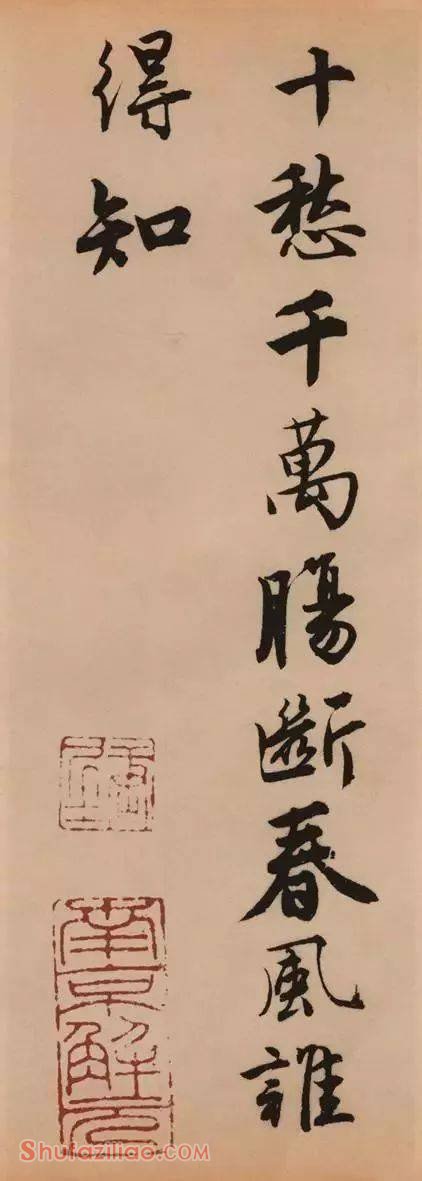 十愁千萬腸斷春風誰
得知
南京解元
Shufaziliao.com